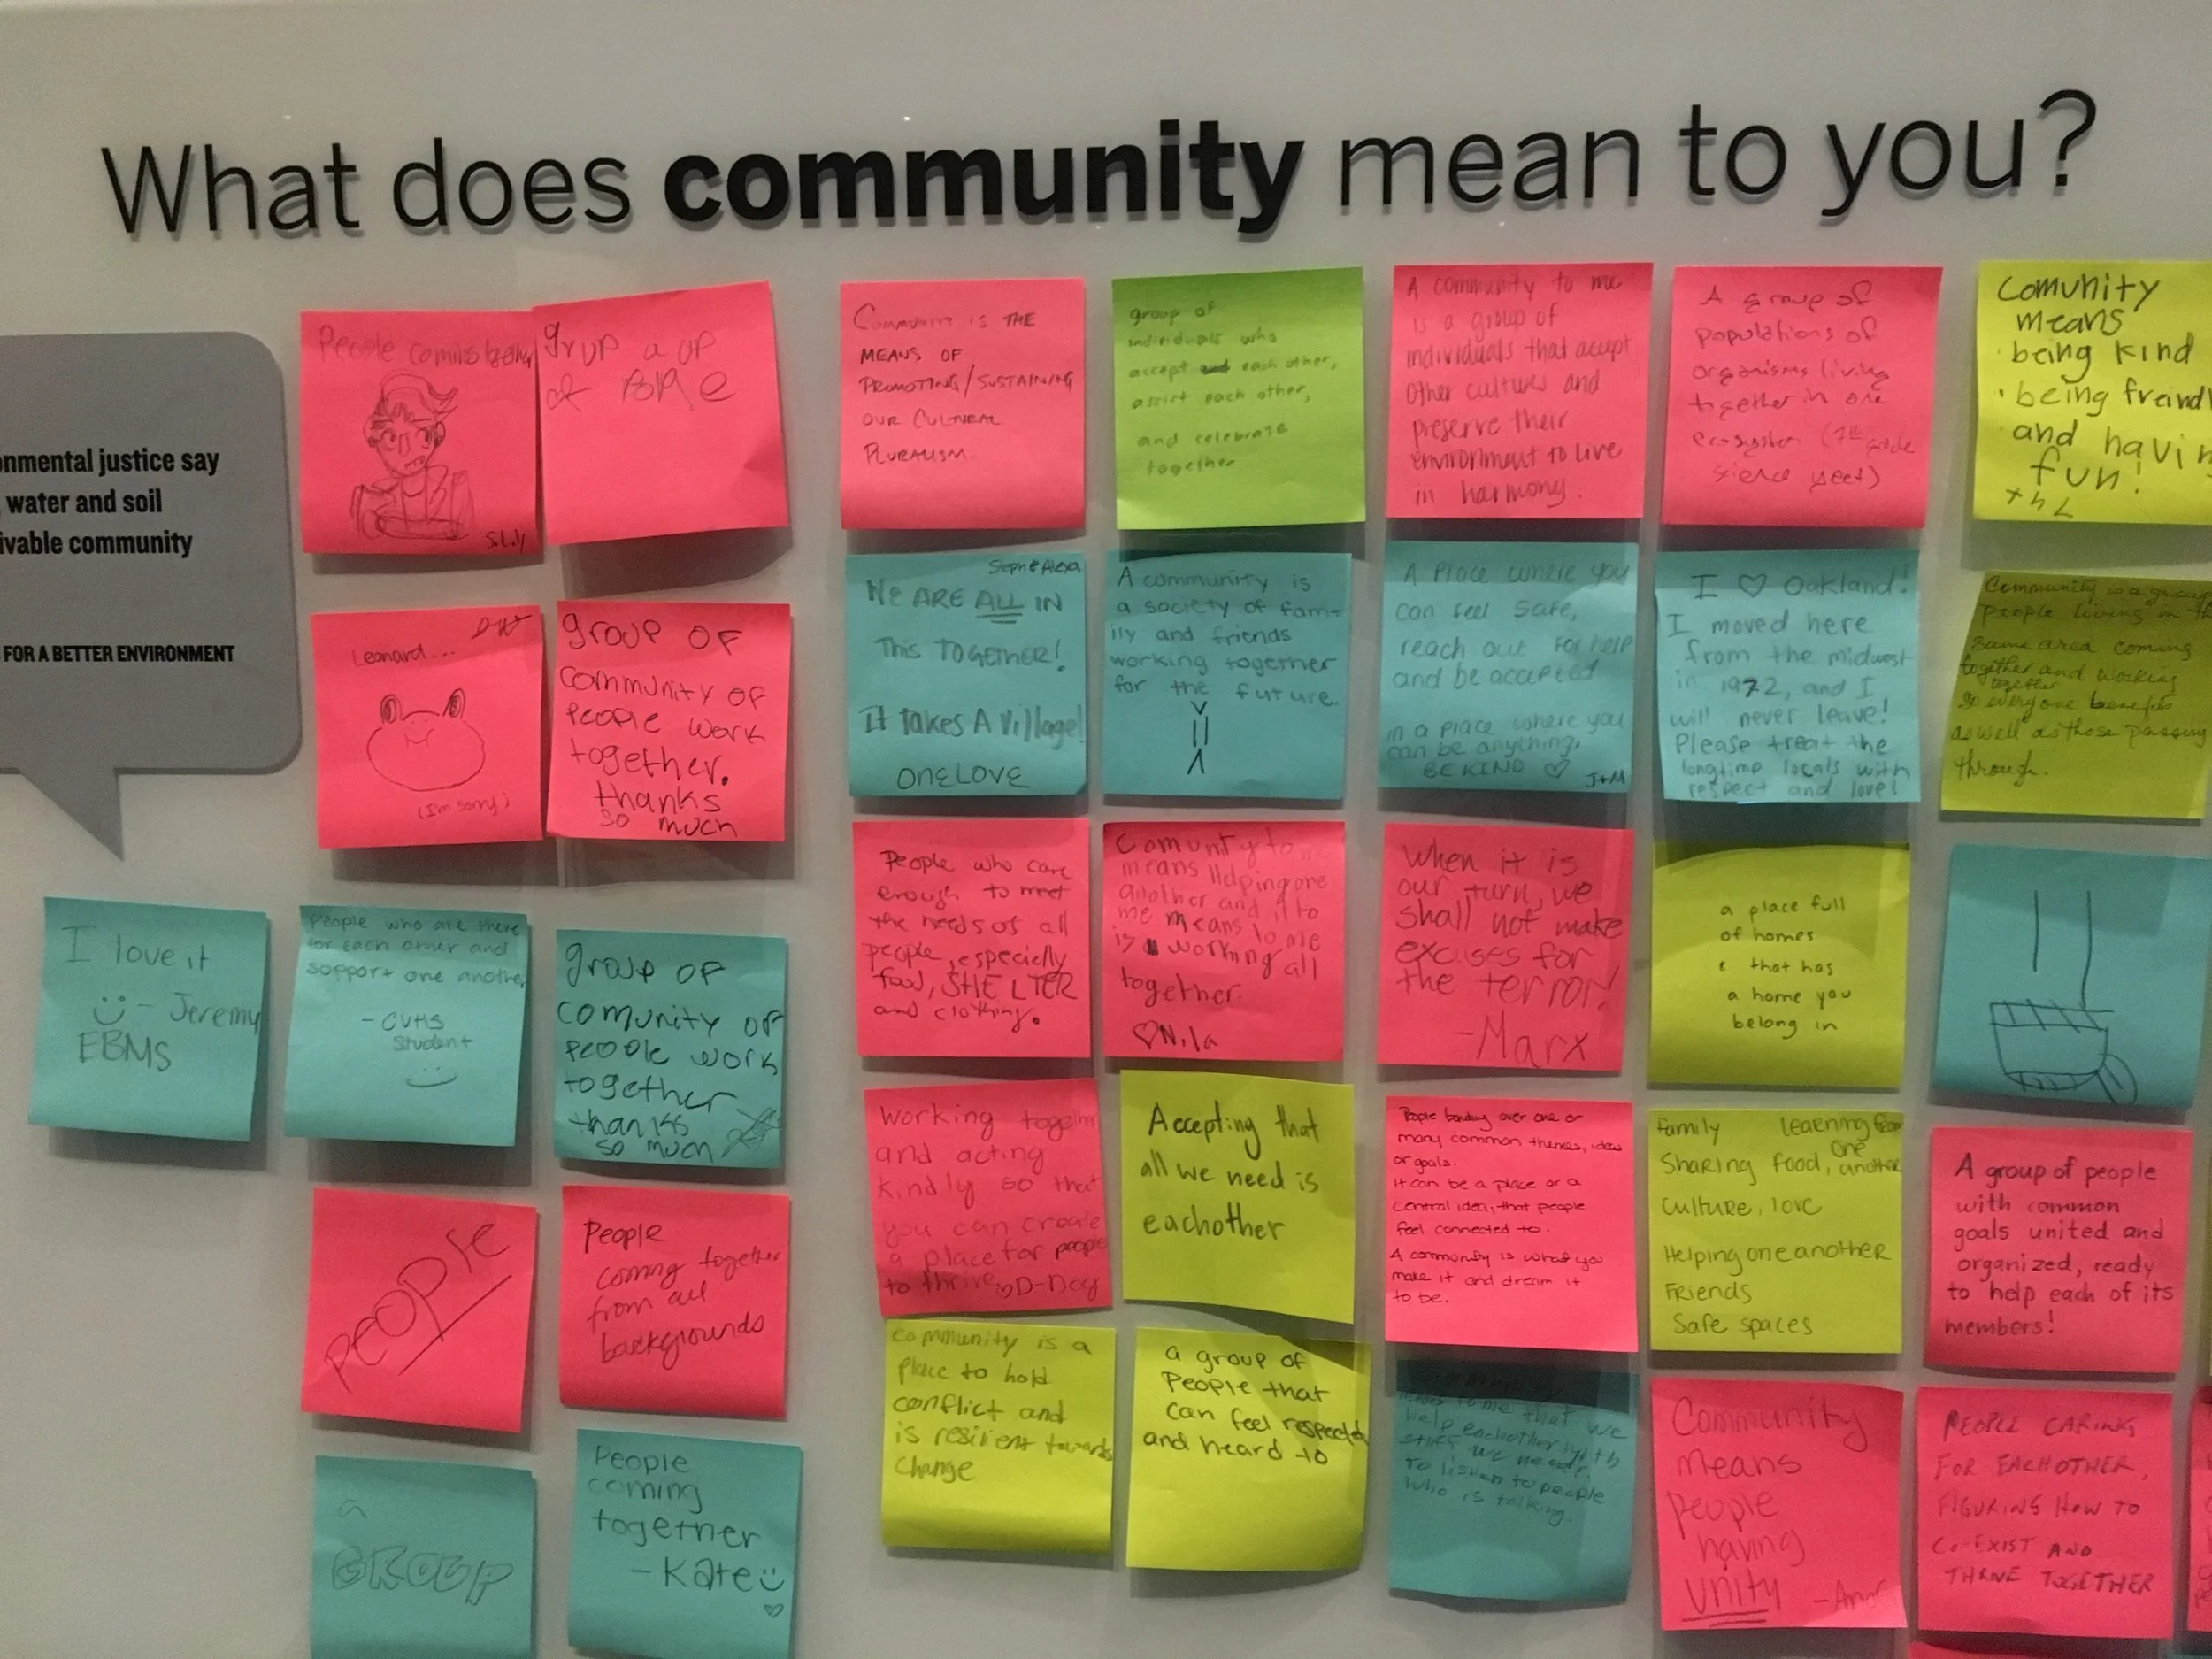 What does community mean to you?
onmental justice say
, water and soil
ivable community
FOR A BETTER ENVIRONMENT
People coming
S.Lily
grup a up
of
COMMUNITY IS THE
MEANS OF
PROMOTING/SUSTAINING
OUR CULTURAL
PLURALISM.
group of
individuals who
accept each other,
assist each other,
and celebrate
together
A community to me
is a group of
individuals that accept
other cultures and
preserve their
environment to live
in harmony.
A group of
populations of
organisms living
together in one
ecosystem (7th grade
science
Comunity
means
· being kind
· being freindl
and havin
fun!
Leonard...
(I'm sorry)
group of
community of
people work
together.
thanks
so much
Steph & Alexa
WE ARE ALL IN
This TOGETHER!
It takes A village!
ONE LOVE
A community is
a society of fam-
ily and friends
working together
for the future.
A place where you
can feel safe,
reach out for help
and be accepted
in a place where you
can be anything,
BE KIND ♡ J+M
I ♡ Oakland!
I moved here
from the midwest
in 1972, and I
will never leave!
Please treat the
longtime locals with
respect and love!
Community is a group
people living in th
same area coming
together and working
together
so everyone benefits
as well as those passing
through.
I love it
- Jeremy
EBMS
People who are there
for each other and
support one another
- CVHS
Student
group of
comunity of
people work
together
thanks
so much
People who care
enough to meet
the needs of all
people, especially
food, SHELTER
and clothing.
Comunty to
means Helping one
another and it to
me means to me
is working all
together.
♡Nila
When it is
our turn, we
shall not make
excuses for
the terror!
-Marx
a place full
of homes
that has
a home you
belong in
PEOPLE
People
coming together
from all
backgrounds
working together
and acting
kindly so that
you can create
a place for people
to thrive D-Dog
Accepting that
all we need is
eachother
People bonding over one or
many common themes, ideas
or goals.
It can be a place or a
central idea, that people
feel connected to.
A community is what you
make it and dream it
to be.
Family learning from
one
Sharing food, another
culture, love
Helping one another
Friends
Safe spaces
A group of people
with common
goals united and
organized, ready
to help each of its
members!
a
GROUP
People
coming
together
- Kate
♡
community is a
place to hold
conflict and
is resilient towards
change
a group of
people that
can feel respected
and heard to
means to me that we
help eachother with
stuff we need,
to listen to people
who is talking.
Community
means
people
having
unity
PEOPLE CARING
FOR EACHOTHER,
FIGURING HOW TO
CO-EXIST AND
THRIVE TOGETHER